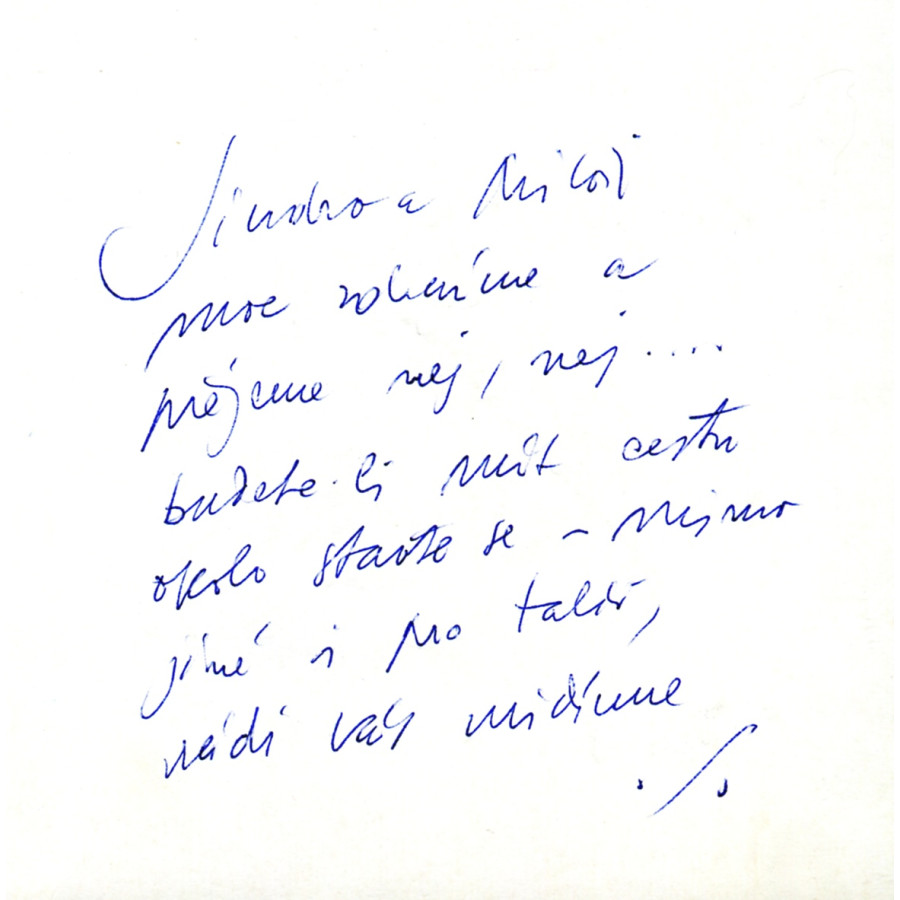 Jindro a Miloši
moc zdravíme a
přejeme nej, nej....
budete-li mít cestu
okolo stavte se - mimo
jiné i pro talíř,
rádi vás uvidíme